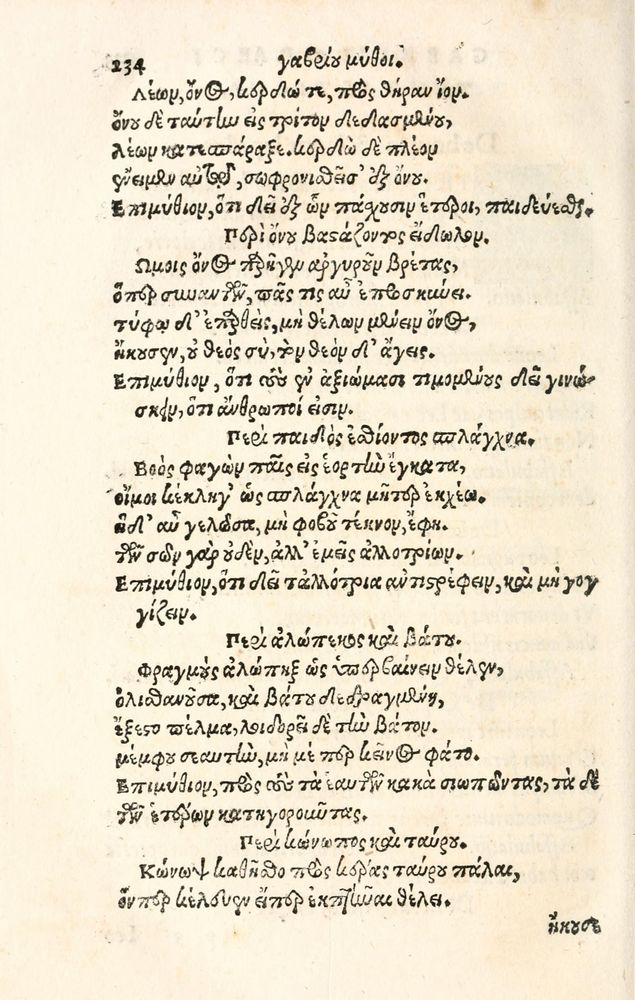 234 γαβρίου μῦθοι.
Λέων, ὄνος, κερδώ τε, πρὸς θήραν ἴον.
ὄνου δὲ ταύτην εἰς τρίτον δεδασμένου,
λέων κατεσπάραξε. κερδὼ δὲ πλέον
ἔνειμεν αὐτῷ, σωφρονισθεῖσ' ἐξ ὄνου.
Ἐπιμύθιον, ὅτι δεῖ ἐξ ὧν πάχουσιν ἕτεροι, παιδεύεσθαι.
Περὶ ὄνου βαστάζοντος εἴδωλον.
Ὤμοις ὄνος προῆγεν ἀργυροῦν βρέτας,
ὅπερ συναντῶν, πᾶς τις αὖ ἐπροσκύνει.
τύφῳ δ' ἐπαρθεὶς, μὴ θέλων μένειν ὄνος,
ἤκουσεν, οὐ θεὸς σὺ, τὸν θεὸν δ' ἄγεις.
Ἐπιμύθιον, ὅτι τοὺς ἐν ἀξιώμασι τιμομένους δεῖ γινώ-
σκειν, ὅτι ἄνθρωποί εἰσιν.
Περὶ παιδὸς ἐσθίοντος σπλάγχνα.
Βοὸς φαγὼν παῖς εἰς ἑορτὴν ἔγκατα,
οἴμοι κέκληγ' ὡς σπλάγχνα μῆτερ ἐκχέω.
ἡ δ' αὖ γελῶσα, μὴ φοβοῦ τέκνον, ἔφη.
τῶν σῶν γὰρ οὐδὲν, ἀλλ' ἐμεῖς ἀλλοτρίων.
Ἐπιμύθιον, ὅτι δεῖ τἀλλότρια ἀντιστρέφειν, καὶ μὴ γογ
γίζειν.
Περὶ ἀλώπεκος καὶ βάτου.
Φραγμοὺς ἀλώπηξ ὡς ὑπερβαίνειν θέλεν,
ὀλισθανοῦσα, καὶ βάτου δεδραγμένη,
ἔξεστο πέλμα, λοιδορεῖ δὲ τὴν βάτον.
μέμφου σεαυτὴν, μὴ μέ περ κεῖνος φάτο.
Ἐπιμύθιον, πρὸς τοὺς τὰ ἑαυτῶν κακὰ σιωπῶντας, τὰ δὲ
τῶν ἑτέρων κατηγοροῦντας.
Περὶ κώνωπος καὶ ταύρου.
Κώνωψ καθῆστο πρὸς κέρας ταύρου πάλαι,
ὅνπερ κέλευεν εἴπερ ἐκπτῆναι θέλει.
ἤκουσε